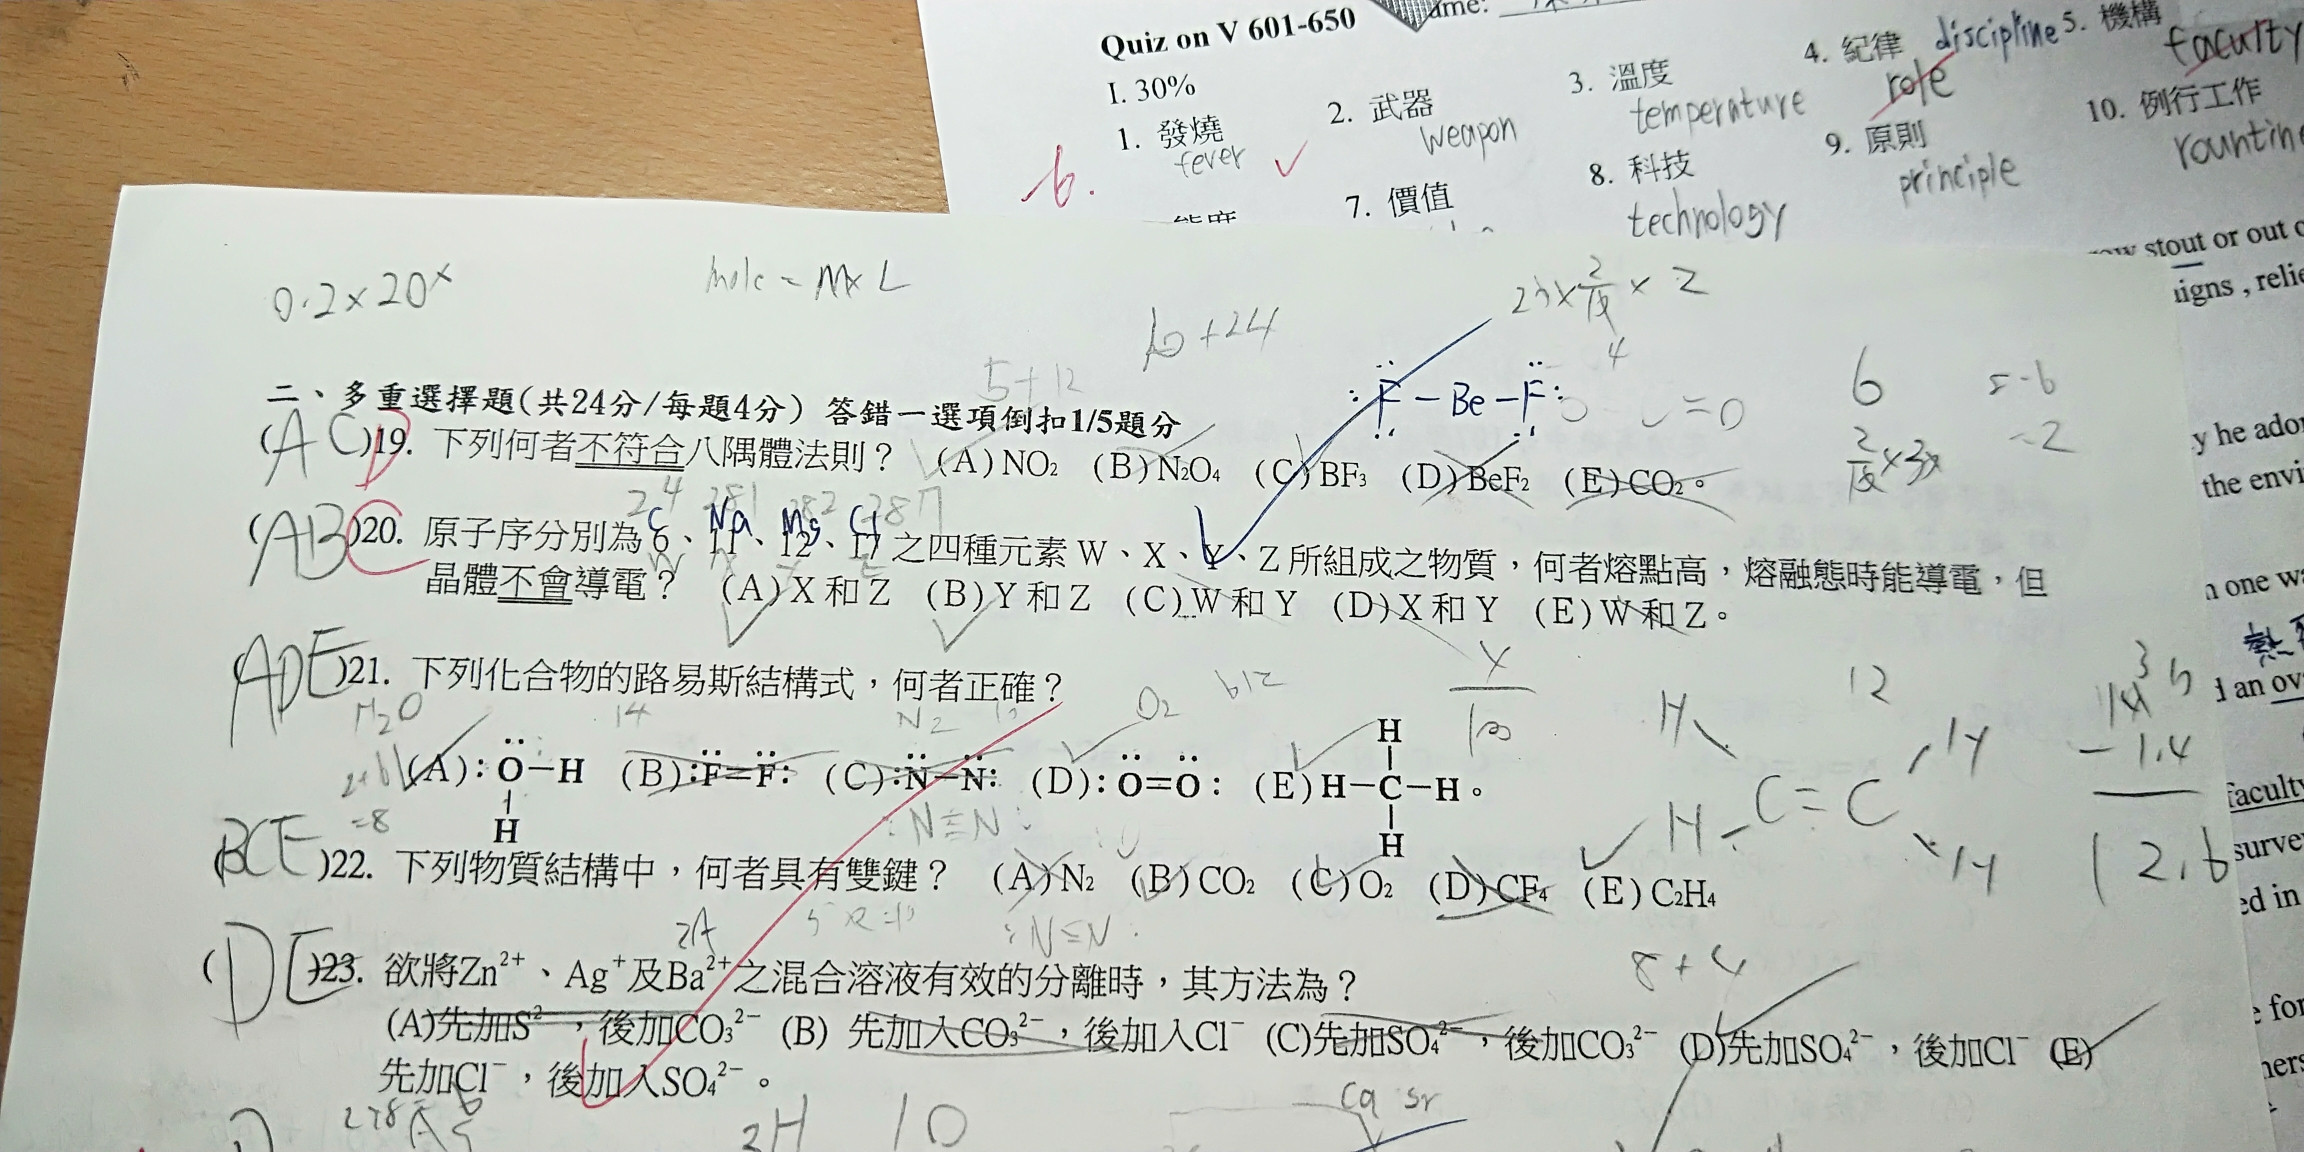 Quiz on V 601-650
I. 30%
1. 發燒 2. 武器 3. 溫度 4. 紀律 discipline 5. 機構
fever weapon temperature role faculty
7. 價值 8. 科技 9. 原則 10. 例行工作
technology principle
stout or out
igns , relie
0.2×20
mole = M×L
6+24
5+12
F－Be－F
二、多重選擇題(共24分/每題4分) 答錯一選項倒扣1/5題分
(AC)19. 下列何者不符合八隅體法則？ (A)NO2 (B)N2O4 (C)BF3 (D)BeF2 (E)CO2。
D
C Na Mg Cl
(AB)20. 原子序分別為6、11、12、17之四種元素 W、X、Y、Z 所組成之物質，何者熔點高，熔融態時能導電，但
晶體不會導電？ (A)X 和 Z (B)Y 和 Z (C)W 和 Y (D)X 和 Y (E)W 和 Z。
(ADE)21. 下列化合物的路易斯結構式，何者正確？
H2O 14 N2 O2
(A):O－H (B):F＝F: (C):N－N: (D):O=O: (E)H－C－H。
H H H
:N≡N:
(BCE)22. 下列物質結構中，何者具有雙鍵？ (A)N2 (B)CO2 (C)O2 (D)CF4 (E)C2H4
:N≡N:
8+4
(DE)23. 欲將Zn2+、Ag+及Ba2+之混合溶液有效的分離時，其方法為？
(A)先加S2-，後加CO32− (B) 先加入CO32−，後加入Cl− (C)先加SO42−，後加CO32− (D)先加SO42−，後加Cl− (E)
先加Cl−，後加入SO42−。
Ca Sr
12
C=C
-1.4
12.6